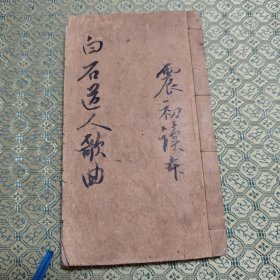 震初读本
白石道人歌曲